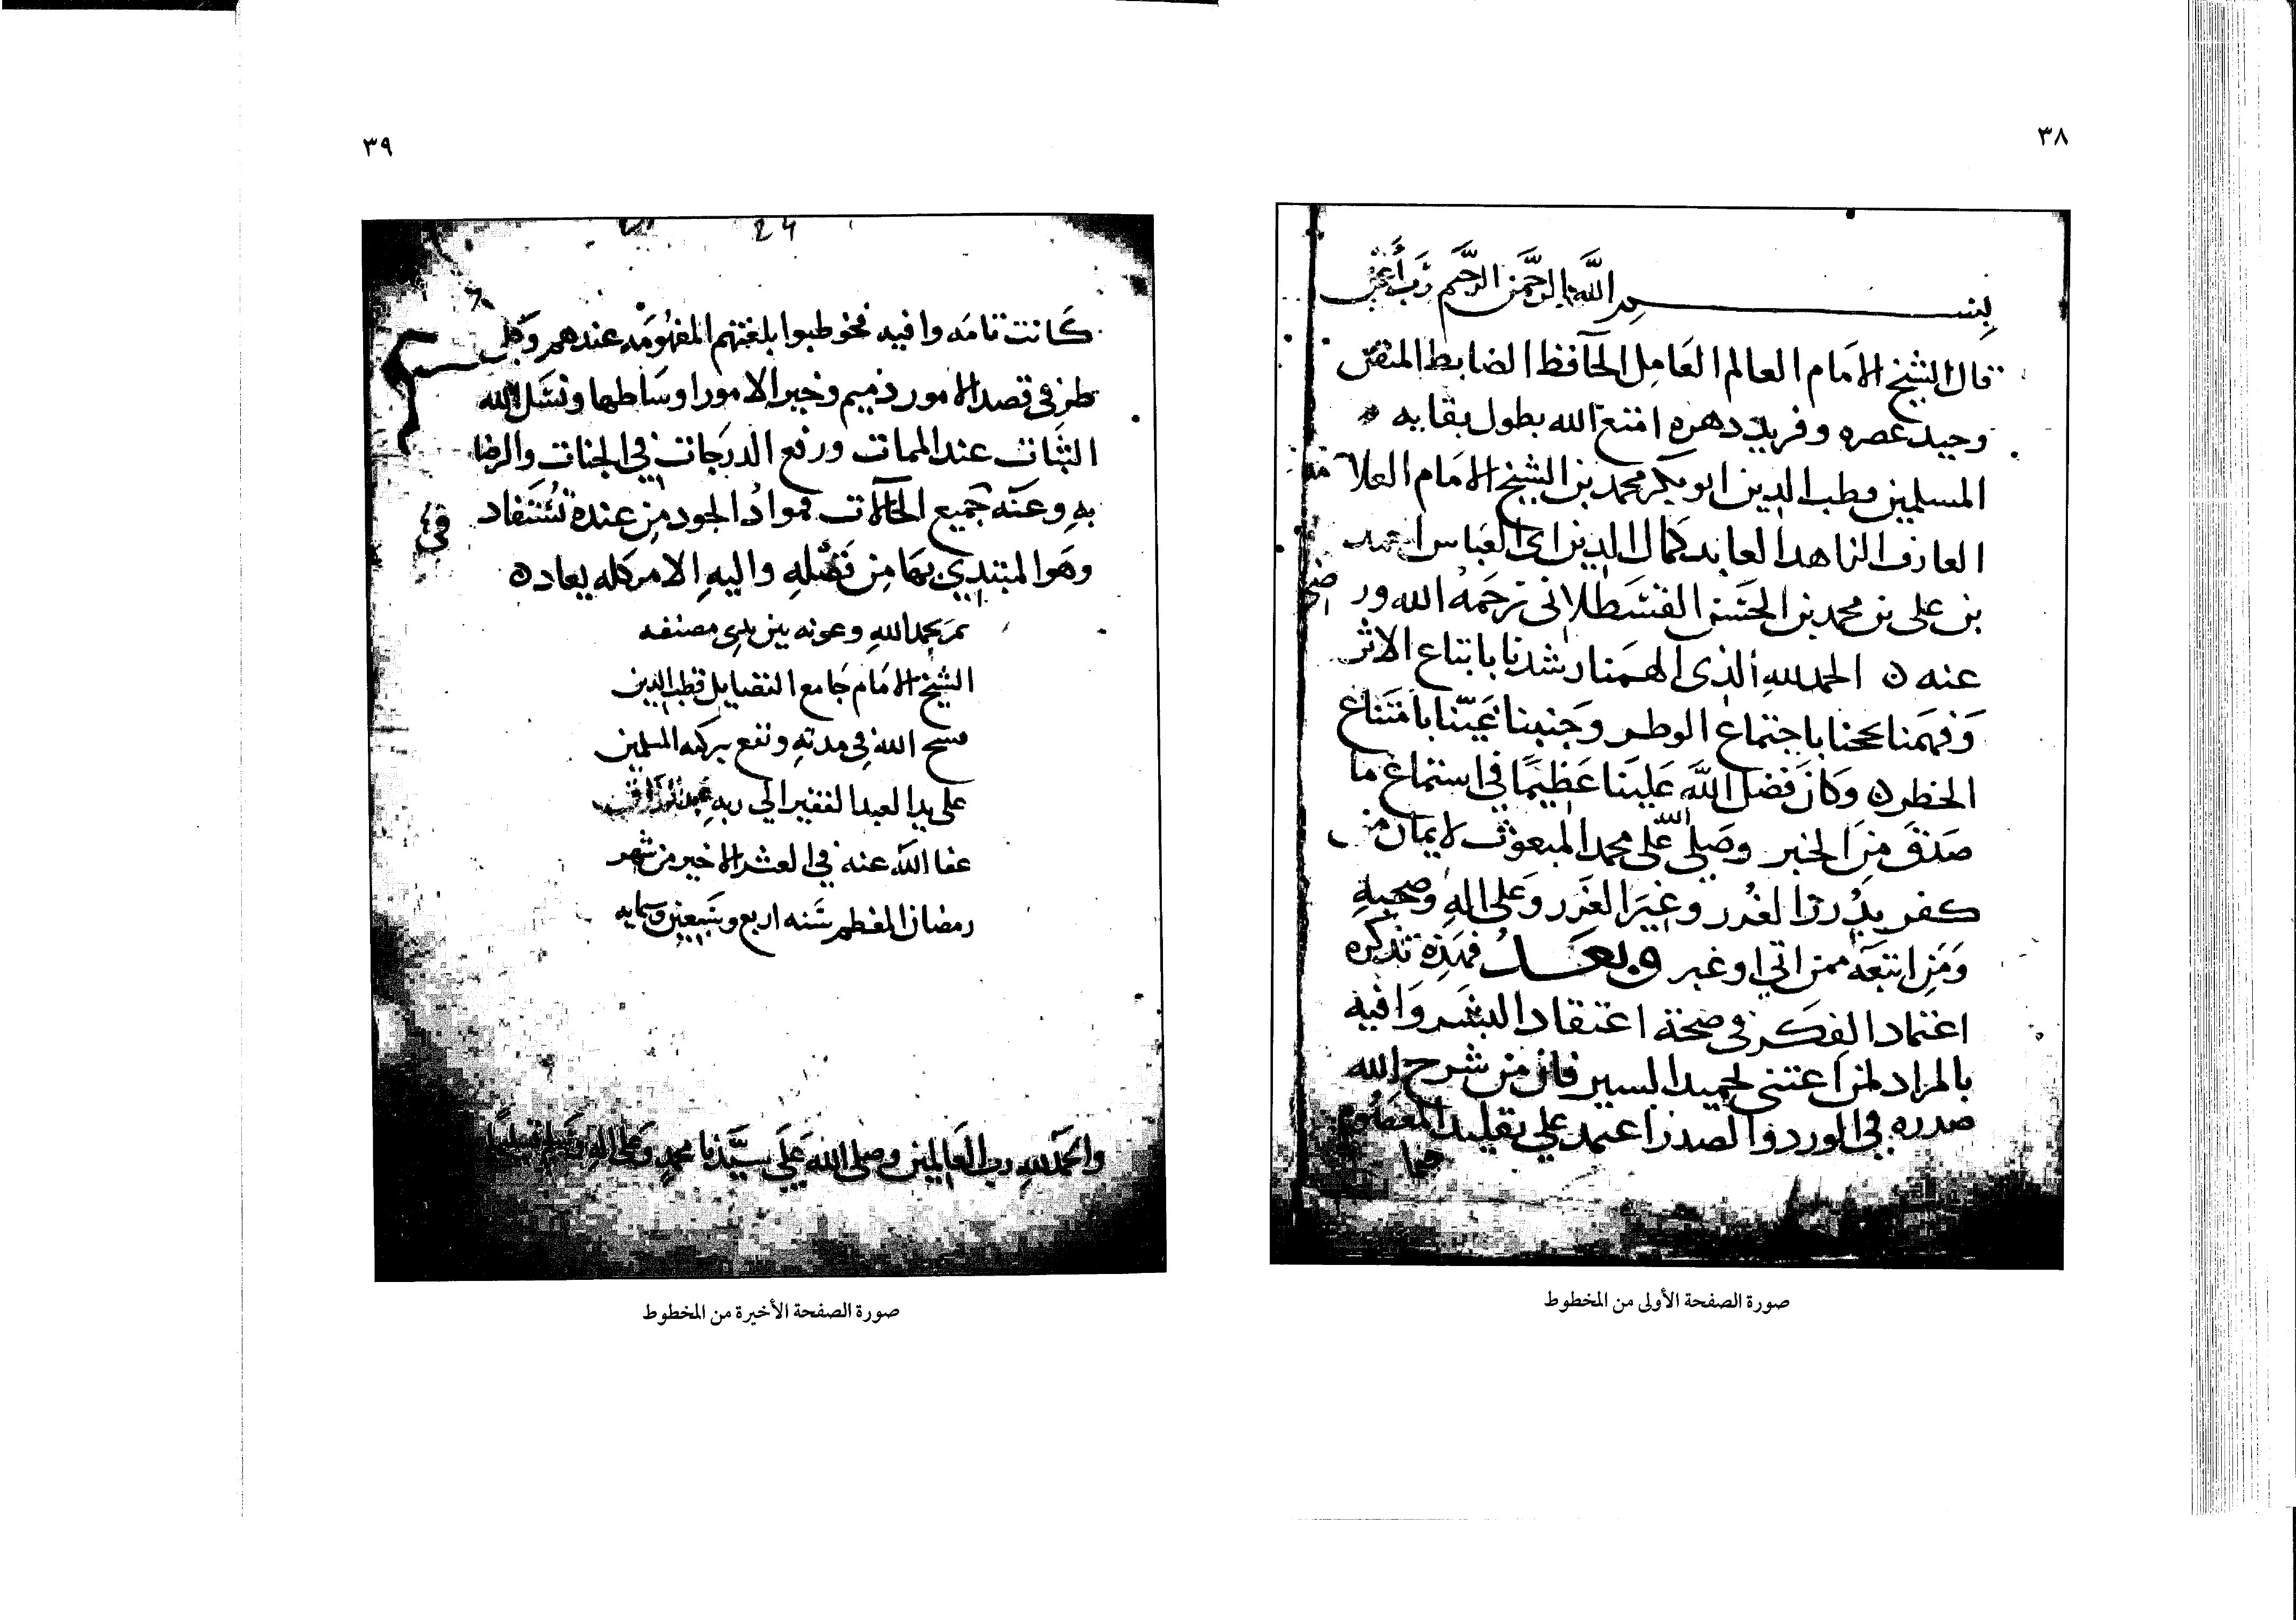 ٣٨
بسم الله الرحمن الرحيم رب أعن
قال الشيخ الامام العالم العامل الحافظ الضابط المتقن
وحيد عصره وفريد دهره امتع الله بطول بقايه
المسلمين قطب الدين ابو بكر محمد بن الشيخ الامام العلامة
العارف الزاهد العابد كمال الدين ابى العباس احمد
بن على بن محمد بن الحسن القسطلانى رحمه الله ورضى
عنه الحمد لله الذى الهمنا رشدنا باتباع الاثر
وفهمنا نجحنا باجتماع الوطر وجنبنا غينا بامتناع
الخطر وكان فضل الله علينا عظيما في استماع ما
صدق من الخبر وصلى الله على محمد المبعوث لايمان من
كفر بدرر الغدر وغير الغرر وعلى اله وصحبه
ومن اتبعه ممن اتي او غبر وبعد فهذه تذكره
اعتماد الفكر في صحة اعتقاد البشر وافيه
بالمراد لمن اعتنى بحميد السير فان من شرح الله
صدره في الورد والصدر اعتمد علي تقليد المعصوم
صورة الصفحة الأولى من المخطوط
٣٩
24
كانت تامه وافيه فخوطبوا بلغتهم المفهومه عندهم وكلى
طرفى قصد الامور ذميم وخير الامور اوساطها ونسل الله
الثبات عند الممات ورفع الدرجات في الجنات والرضا
به وعنه في جميع الحالات فمواد الجود من عنده تستفاد
وهو المبتدي بها من فضله واليه الامر كله يعاد
تم بحمد الله وعونه بين يدي مصنفه
الشيخ الامام جامع الفضايل قطب الدين
فسح الله في مدته ونفع ببركته المسلمين
على يد العبد الفقير الي ربه
عفا الله عنه في العشر الاخير من شهر
رمضان المعظم سنه اربع وسبعين وستمايه
والحمد لله رب العالمين وصلى الله على سيدنا محمد وعلى اله وسلم تسليما
صورة الصفحة الأخيرة من المخطوط